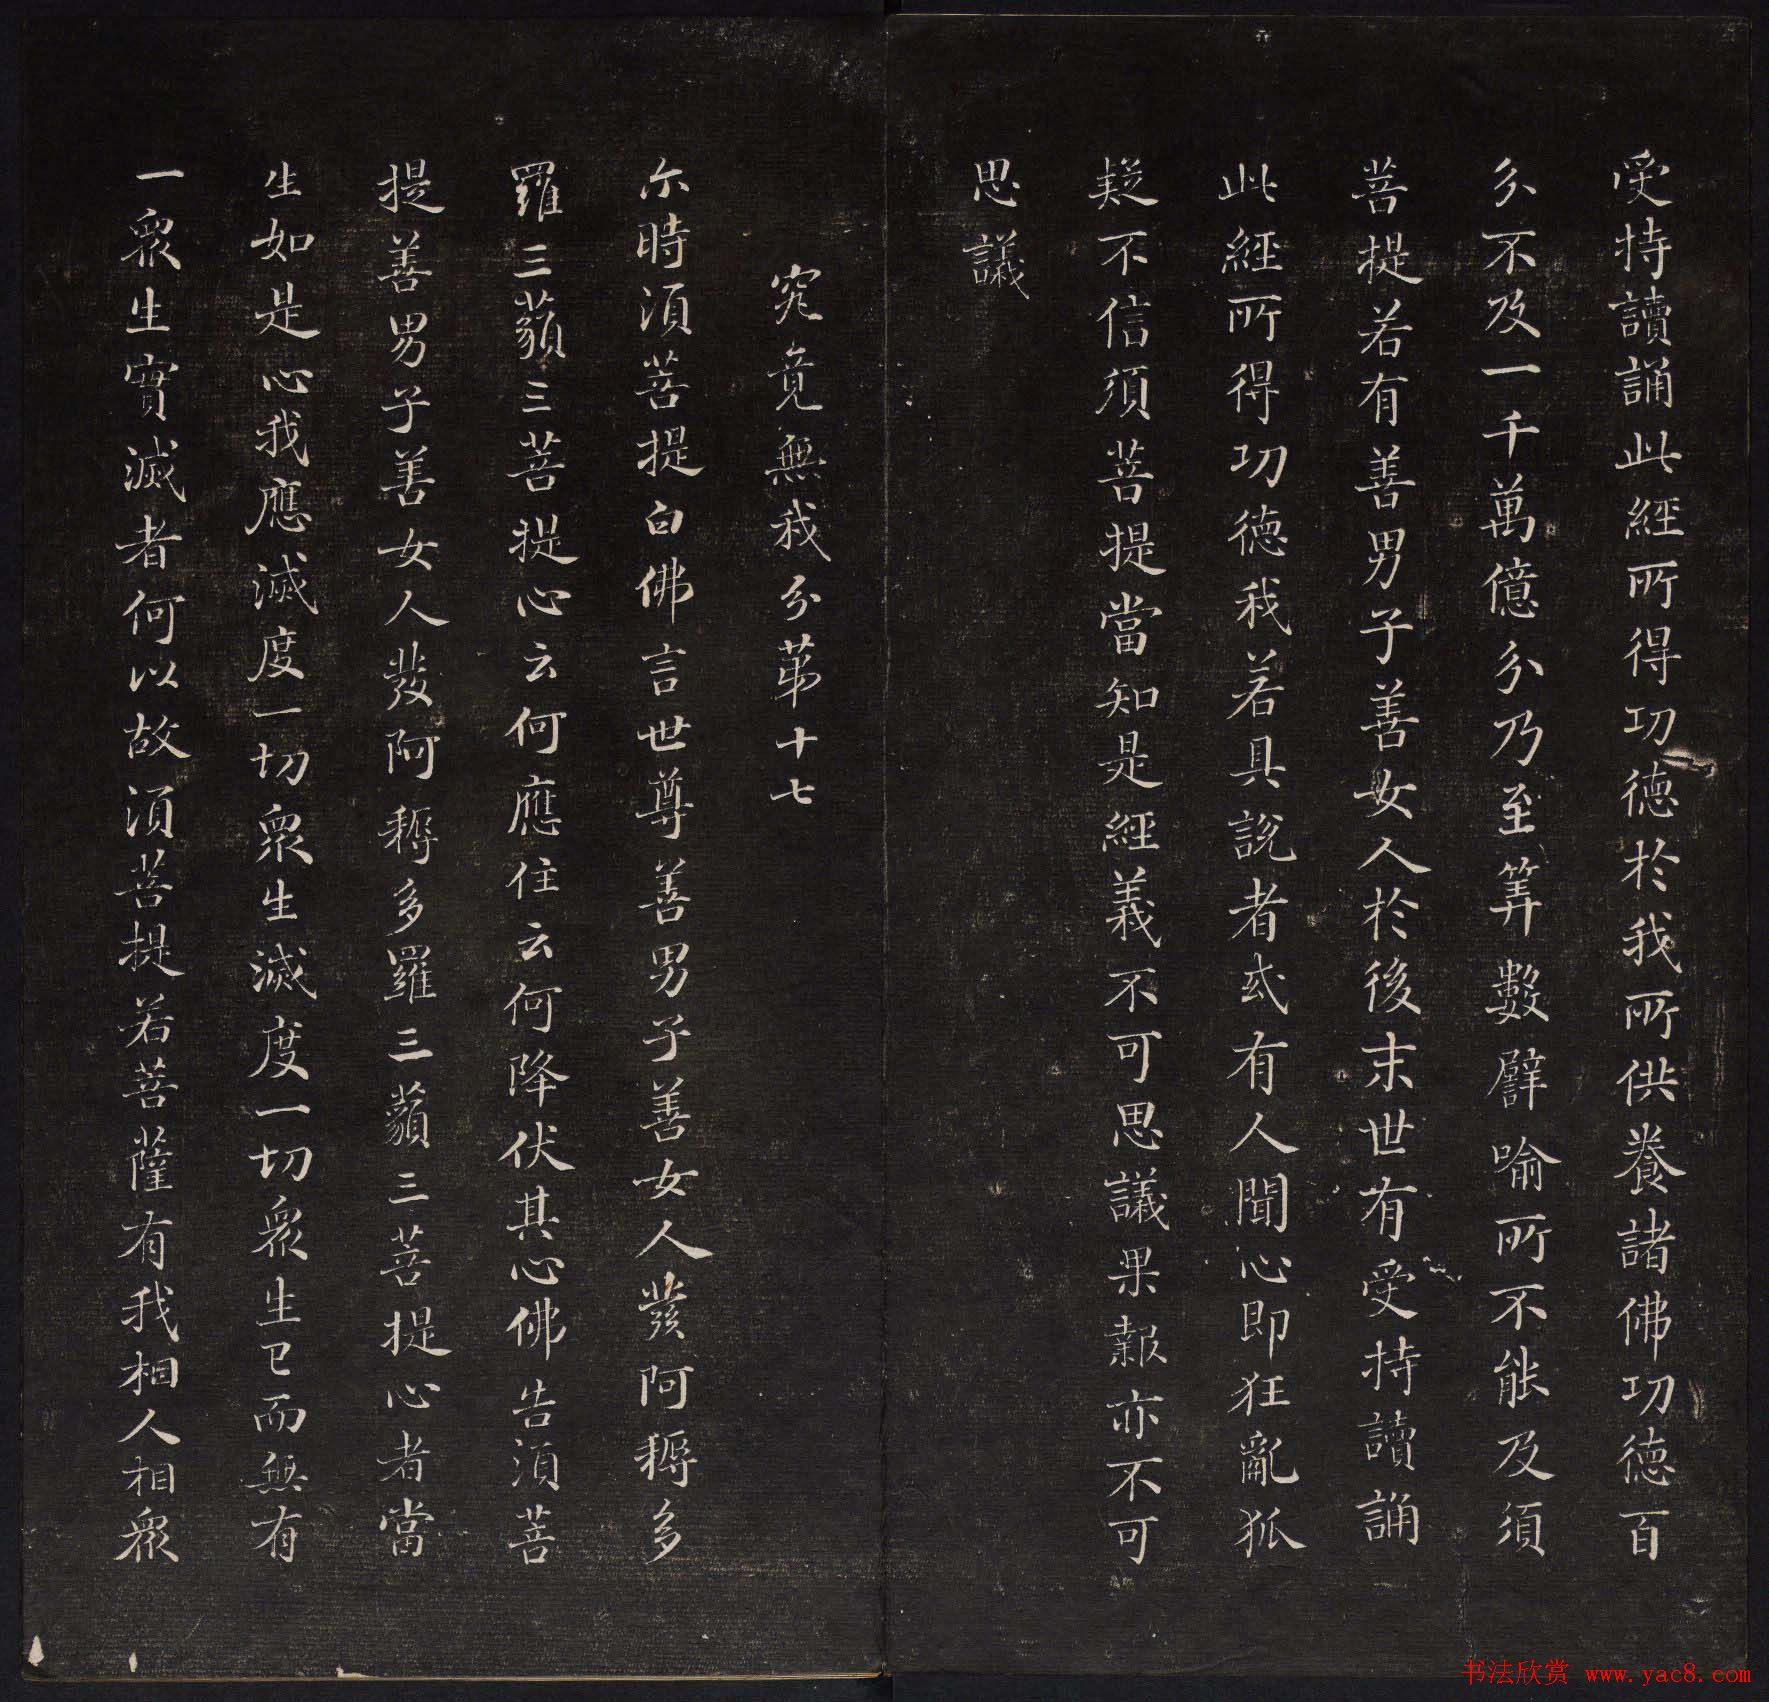 受持讀誦此經所得功德於我所供養諸佛功德百
分不及一千萬億分乃至筭數譬喻所不能及須
菩提若有善男子善女人於後末世有受持讀誦
此經所得功德我若具說者或有人聞心即狂亂狐
疑不信須菩提當知是經義不可思議果報亦不可
思議
究竟無我分第十七
尒時須菩提白佛言世尊善男子善女人發阿耨多
羅三藐三菩提心云何應住云何降伏其心佛告須菩
提善男子善女人發阿耨多羅三藐三菩提心者當
生如是心我應滅度一切眾生滅度一切眾生已而無有
一眾生實滅者何以故須菩提若菩薩有我相人相眾
书法欣赏 www.yac8.com